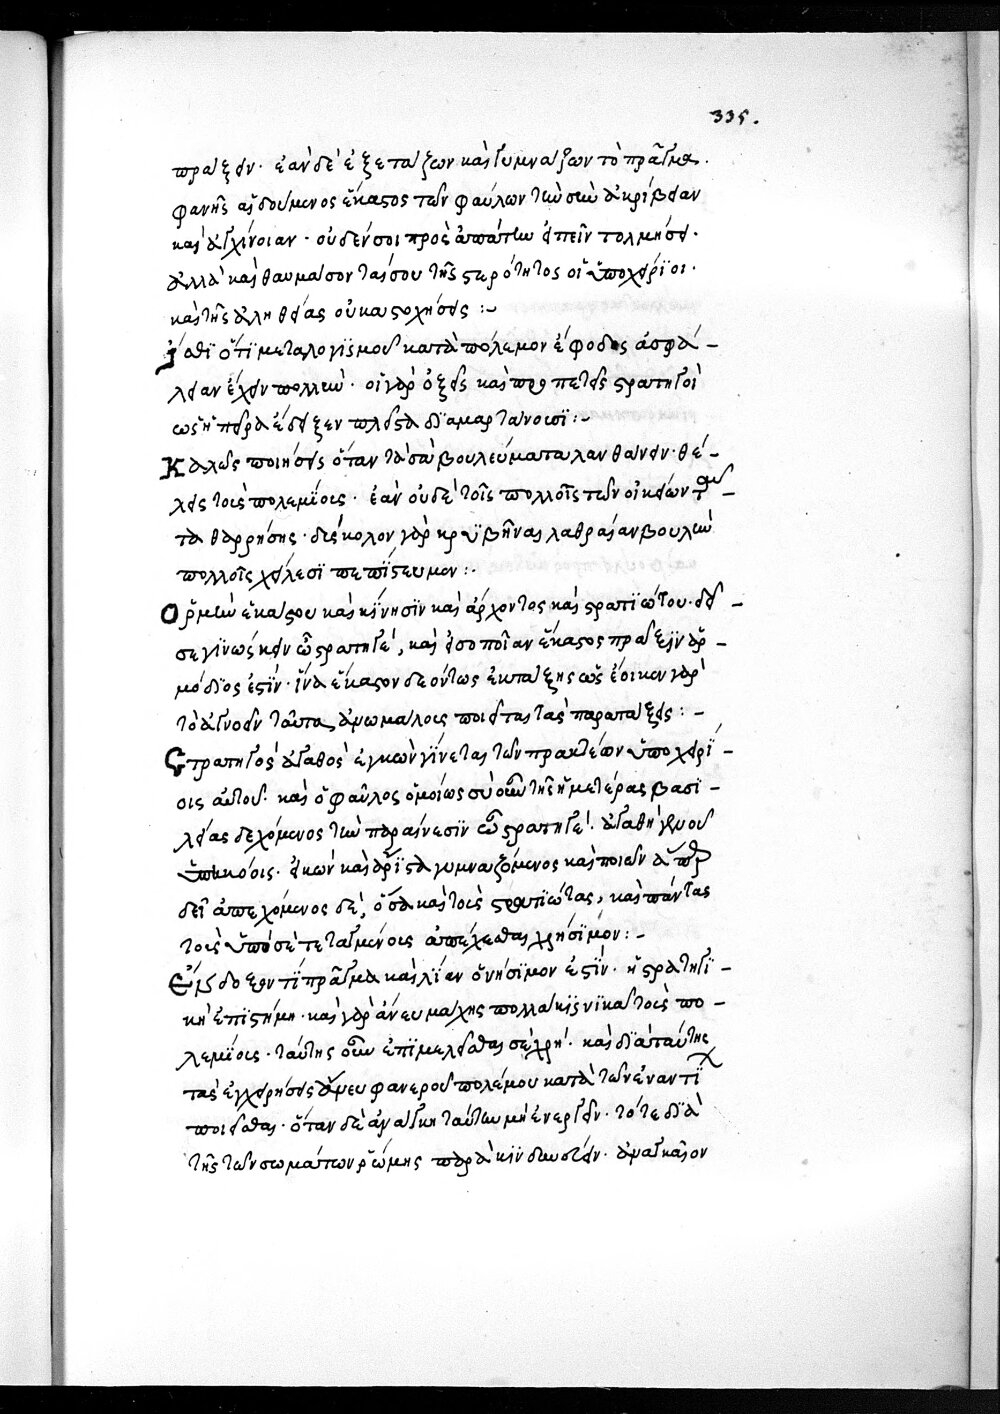 335.
πράξειν· ἐὰν δὲ ἐξετάζων καὶ γυμνάζων τὸ πρᾶγμα
φανῇς αἰδούμενος ἕκαστος τῶν φαύλων τὴν σὴν ἀκρίβειαν
καὶ ἀγχίνοιαν· οὐδέν σοι πρὸς ἀπάτην εἰπεῖν τολμήσει·
ἀλλὰ καὶ θαυμάσονταί σου τῆς στερότητος οἱ ὑποχείριοι·
καὶ τῆς ἀληθείας οὐκ ἀστοχήσεις :-
ἴσθι ὅτι μεταλογισμοῦ κατὰ πόλεμον ἔφοδος ἀσφά-
λειαν ἔχειν πολλήν· οἱ γὰρ ὀξεῖς καὶ προπετεῖς στρατηγοὶ
ὡς ἡ πεῖρα ἔδειξεν πλεῖστα διαμαρτάνουσι :-
Καλῶς ποιήσεις ὅταν τὰ σὰ βουλεύματα λανθάνειν θέ-
λεις τοὺς πολεμίους· ἐὰν οὐδὲ τοῖς πολλοῖς τῶν οἰκείων
τα θαρρήσῃς· δύσκολον γὰρ κρυβῆναι λαθραίαν βουλὴν
πολλοῖς χείλεσι πεπιστευμένην :-
Ὁρμὴν ἑκάστου καὶ κίνησιν καὶ ἄρχοντος καὶ στρατιώτου· δεῖ
σε γινώσκειν ὦ στρατηγέ, καὶ εἰς ὁποίαν ἕκαστος πρᾶξιν ἁρ-
μόδιός ἐστιν· ἵνα ἕκαστον δεόντως ἐκτάξῃς ὡς ἔοικεν γὰρ
τὸ ἀγνοεῖν ταῦτα, ἀνωμάλους ποιεῖται τὰς παρατάξεις :-
Στρατηγὸς ἀγαθὸς ἑκὼν γίνεται τῶν πρακτέων ὑποχειρί-
οις αὐτοῦ· καὶ ὁ φαῦλος ὁμοίως σὺ οὖν τῆς ἡμετέρας βασι-
λείας δεχόμενος τὴν παραίνεσιν ὦ στρατηγέ· ἀγαθὴ γενοῦ
ὑπηκόοις· εἰκὼν καὶ ἄριστα γυμναζόμενος καὶ ποιῶν ἅπερ
δεῖ ἀπεχόμενος δὲ, ὅσα καὶ τοὺς στρατιώτας, καὶ πάντας
τοὺς ὑπὸ σὲ τεταγμένους ἀπέχεσθαι χρήσιμον :-
Εὐένδοξόν τι πρᾶγμα καὶ λίαν ὀνήσιμόν ἐστιν· ἡ στρατηγι-
κὴ ἐπιστήμη· καὶ γὰρ ἄνευ μάχης πολλάκις νικᾷ τοὺς πο-
λεμίους· ταύτης οὖν ἐπιμελεῖσθαι σὲ χρή· καὶ διὰ ταύτης
τὰς ἐγχειρήσεις ἄνευ φανεροῦ πολέμου κατὰ τῶν ἐναντί
ποιεῖσθαι· ὅταν δὲ ἀνάγκη ταύτην μὴ ἐνεργεῖν· τότε διὰ
τῆς τῶν σωμάτων ῥώμης παρακινδυνεύειν· ἀναγκαῖον